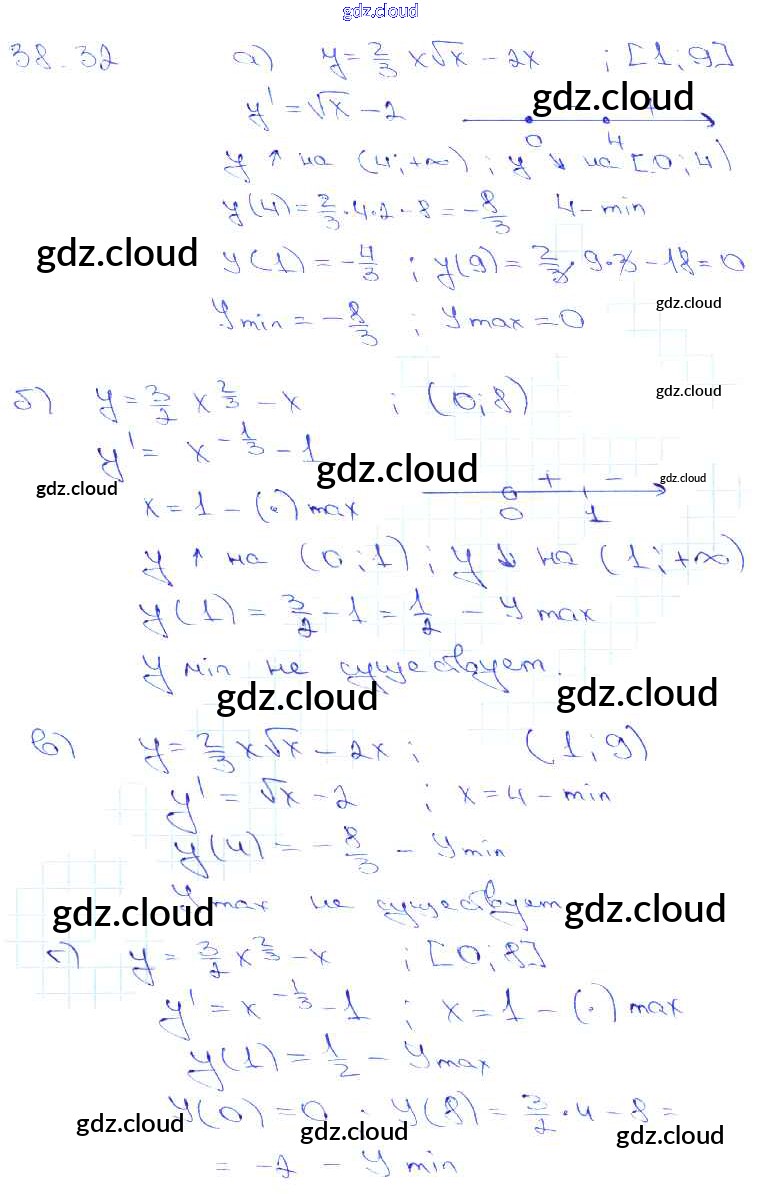 gdz.cloud
38.32 а) y = 2/3 x√x - 2x ; [1; 9]
y' = √x - 2
gdz.cloud
+
0 4
y ↑ на (4; +∞) ; y ↓ на [0; 4)
y(4) = 2/3 · 4 · 2 - 8 = -8/3 4 - min
gdz.cloud
y(1) = -4/3 ; y(9) = 2/3 · 9 · 3 - 18 = 0
y min = -8/3 ; y max = 0
gdz.cloud
б) y = 3/2 x^(2/3) - x ; (0; 8)
gdz.cloud
y' = x^(-1/3) - 1
gdz.cloud
+ -
gdz.cloud
0 1
gdz.cloud
x = 1 - (·) max
y ↑ на (0; 1) ; y ↓ на (1; +∞)
y(1) = 3/2 - 1 = 1/2 - y max
y min не существует.
gdz.cloud
gdz.cloud
в) y = 2/3 x√x - 2x ; (1; 9)
y' = √x - 2 ; x = 4 - min
y(4) = -8/3 - y min
y max не существует
gdz.cloud
gdz.cloud
г) y = 3/2 x^(2/3) - x ; [0; 8]
y' = x^(-1/3) - 1 ; x = 1 - (·) max
y(1) = 1/2 - y max
y(0) = 0 ; y(8) = 3/2 · 4 - 8 =
gdz.cloud
gdz.cloud
gdz.cloud
= -2 - y min